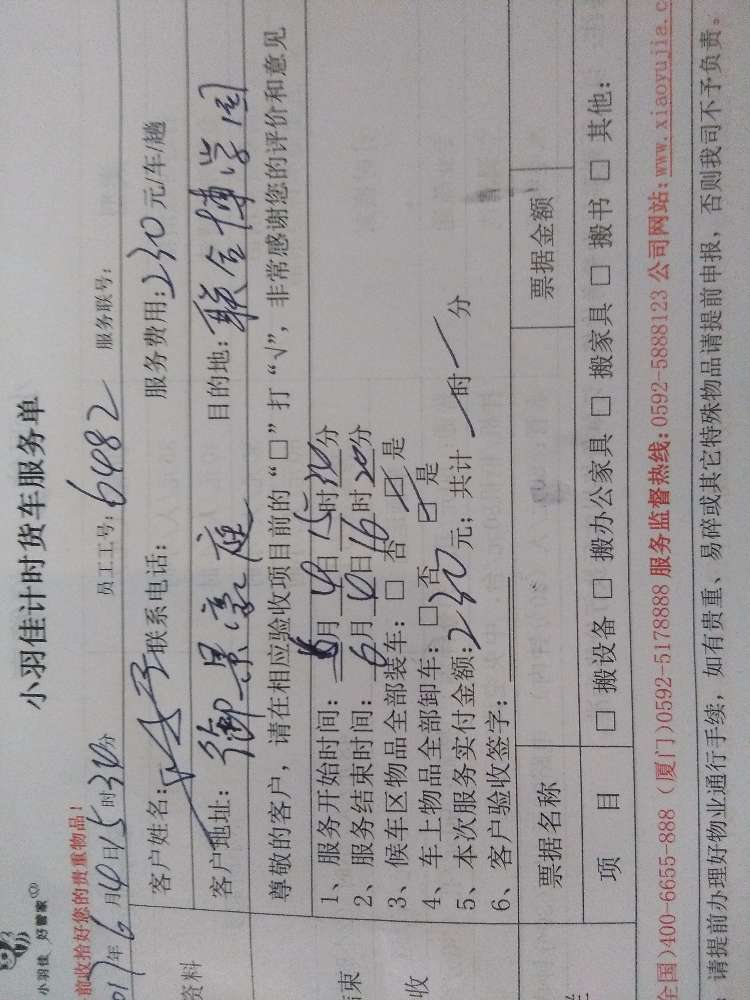 小羽佳 好管家
小羽佳计时货车服务单
前收拾好您的贵重物品！
017年6月4日15时30分 员工工号：6482 服务联号：
资料
客户姓名： 联系电话： 服务费用：230元/车/趟
客户地址：御景豪庭 目的地：联合博学园
尊敬的客户，请在相应验收项目前的“□”打“√”，非常感谢您的评价和意见
1、服务开始时间：6月4日15时30分
2、服务结束时间：6月4日16时20分
结束
3、候车区物品全部装车：□否 ☑是
4、车上物品全部卸车：□否 ☑是
收
5、本次服务实付金额：230元；共计 时 分
6、客户验收签字：
票据名称 票据金额
项目 □搬设备 □搬办公家具 □搬家具 □搬书 □其他：
全国)400-6655-888 （厦门)0592-5178888 服务监督热线：0592-5888123 公司网站：www.xiaoyujia.c
：请提前办理好物业通行手续，如有贵重、易碎或其它特殊物品请提前申报，否则我司不予负责。